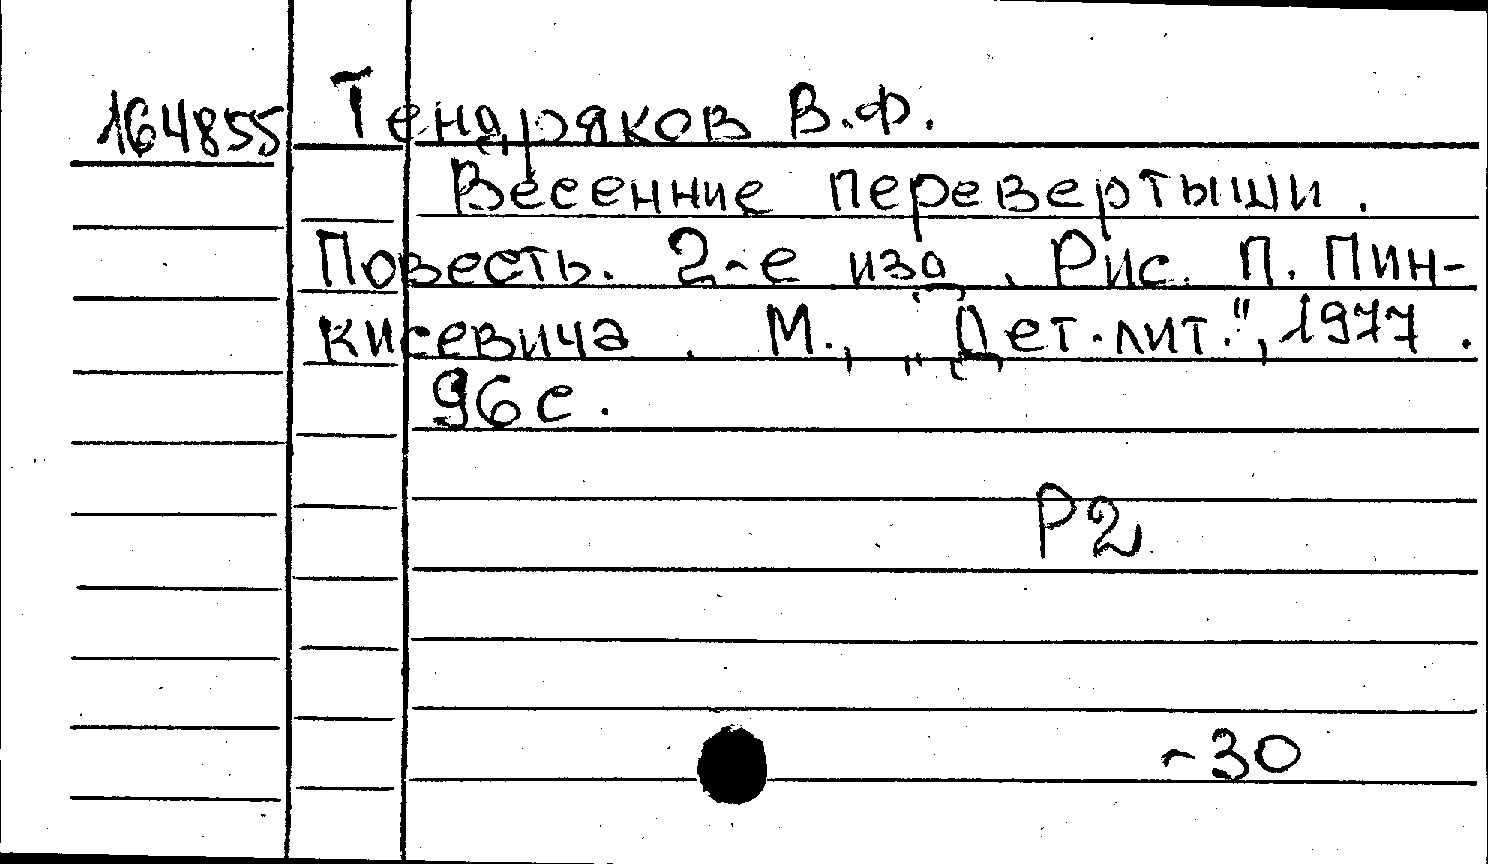 164855 Тендряков В.Ф.
Весенние перевертыши.
Повесть. 2-е изд. Рис. П. Пин-
кисевича. М., „Дет. лит.", 1977.
96 с.
Р2
-30